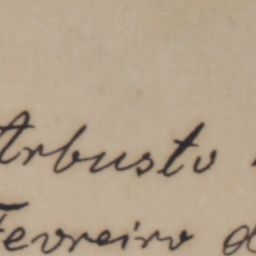 Arbusto
Fevreiro d